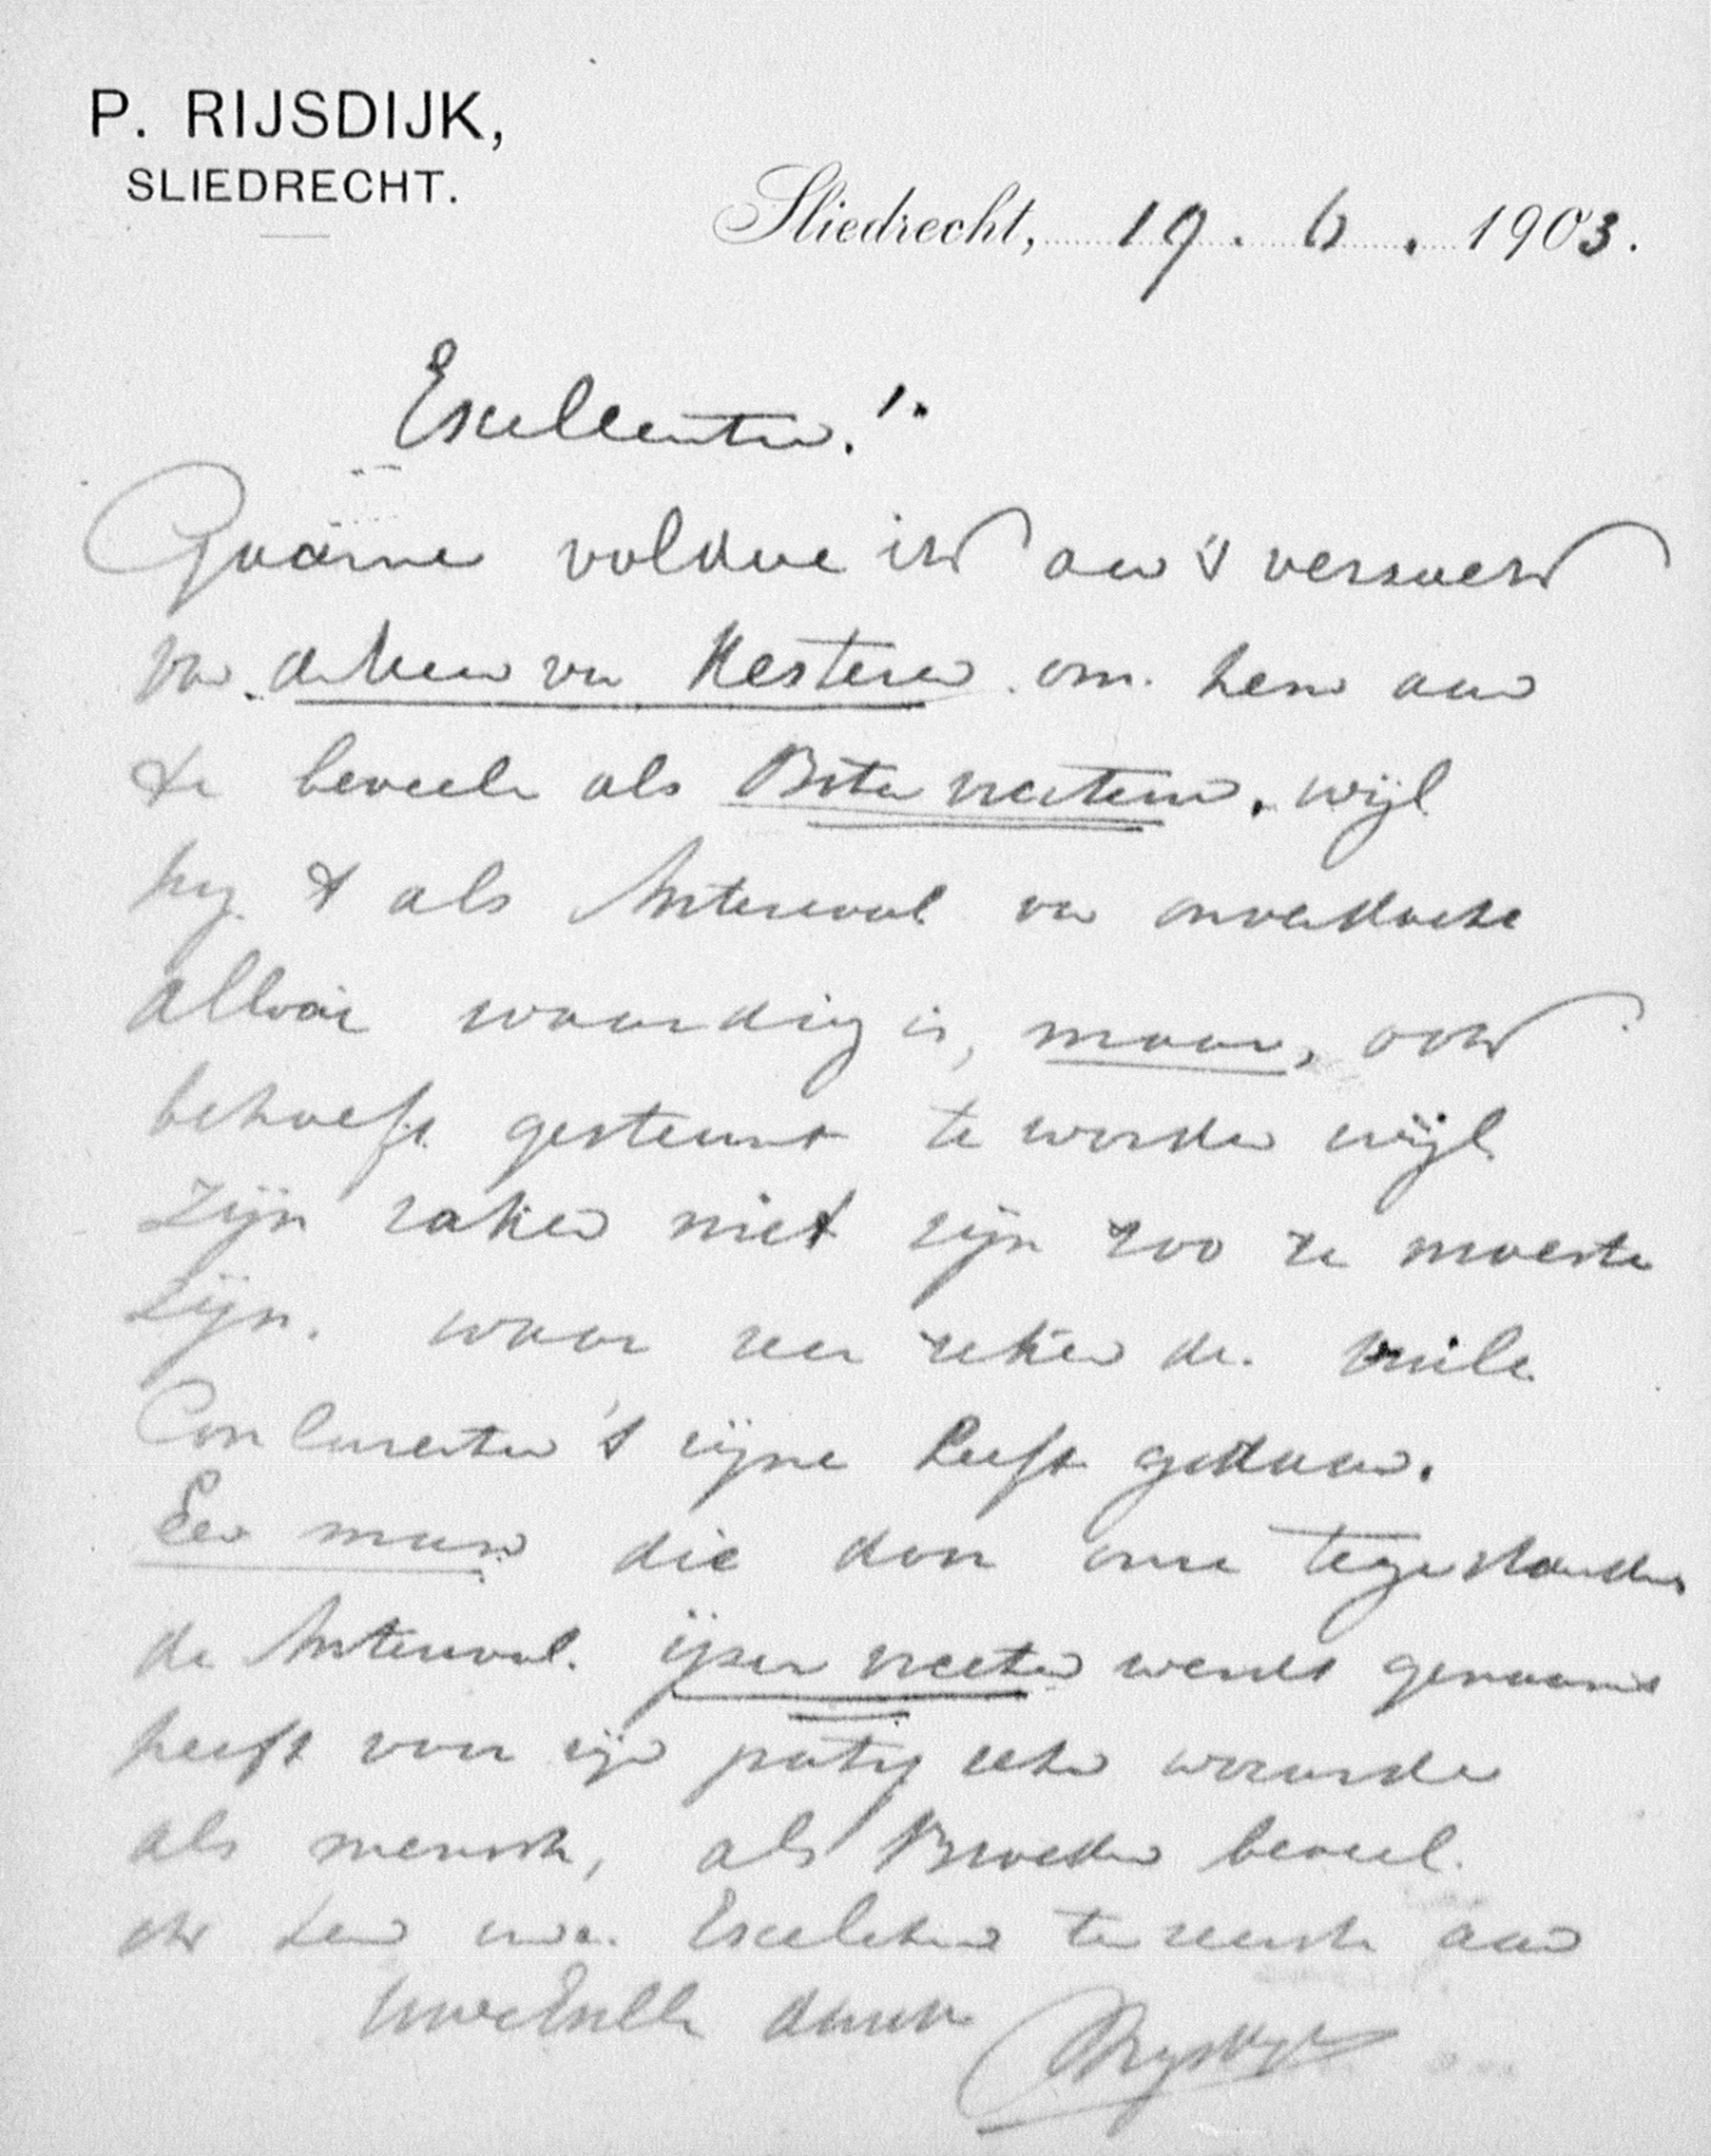 P. RIJSDIJK,
SLIEDRECHT.
Sliedrecht, 19. 6. 1903.
Excellentie!
Gaarne voldoe ik aan 't verzoek
van den Heer van Kesteren om hem aan
te bevelen als wijl
hij als Antirevol. van onverdachte
waardig is, maar, ook
behoeft gesteund te worden wijl
zijn zaken niet zijn zoo ze moeste
zijn. waar zeer zeker de vuile
Concurentie 't zijne heeft gedaan.
Een man die door onze tegenstanders
de Antirevol. ijzer vreeter werdt genaamd
heeft voor zijn partij zeker waarde
als mensch, als Broeder beveel
ik hem uwe Excelentie ten zeerste aan